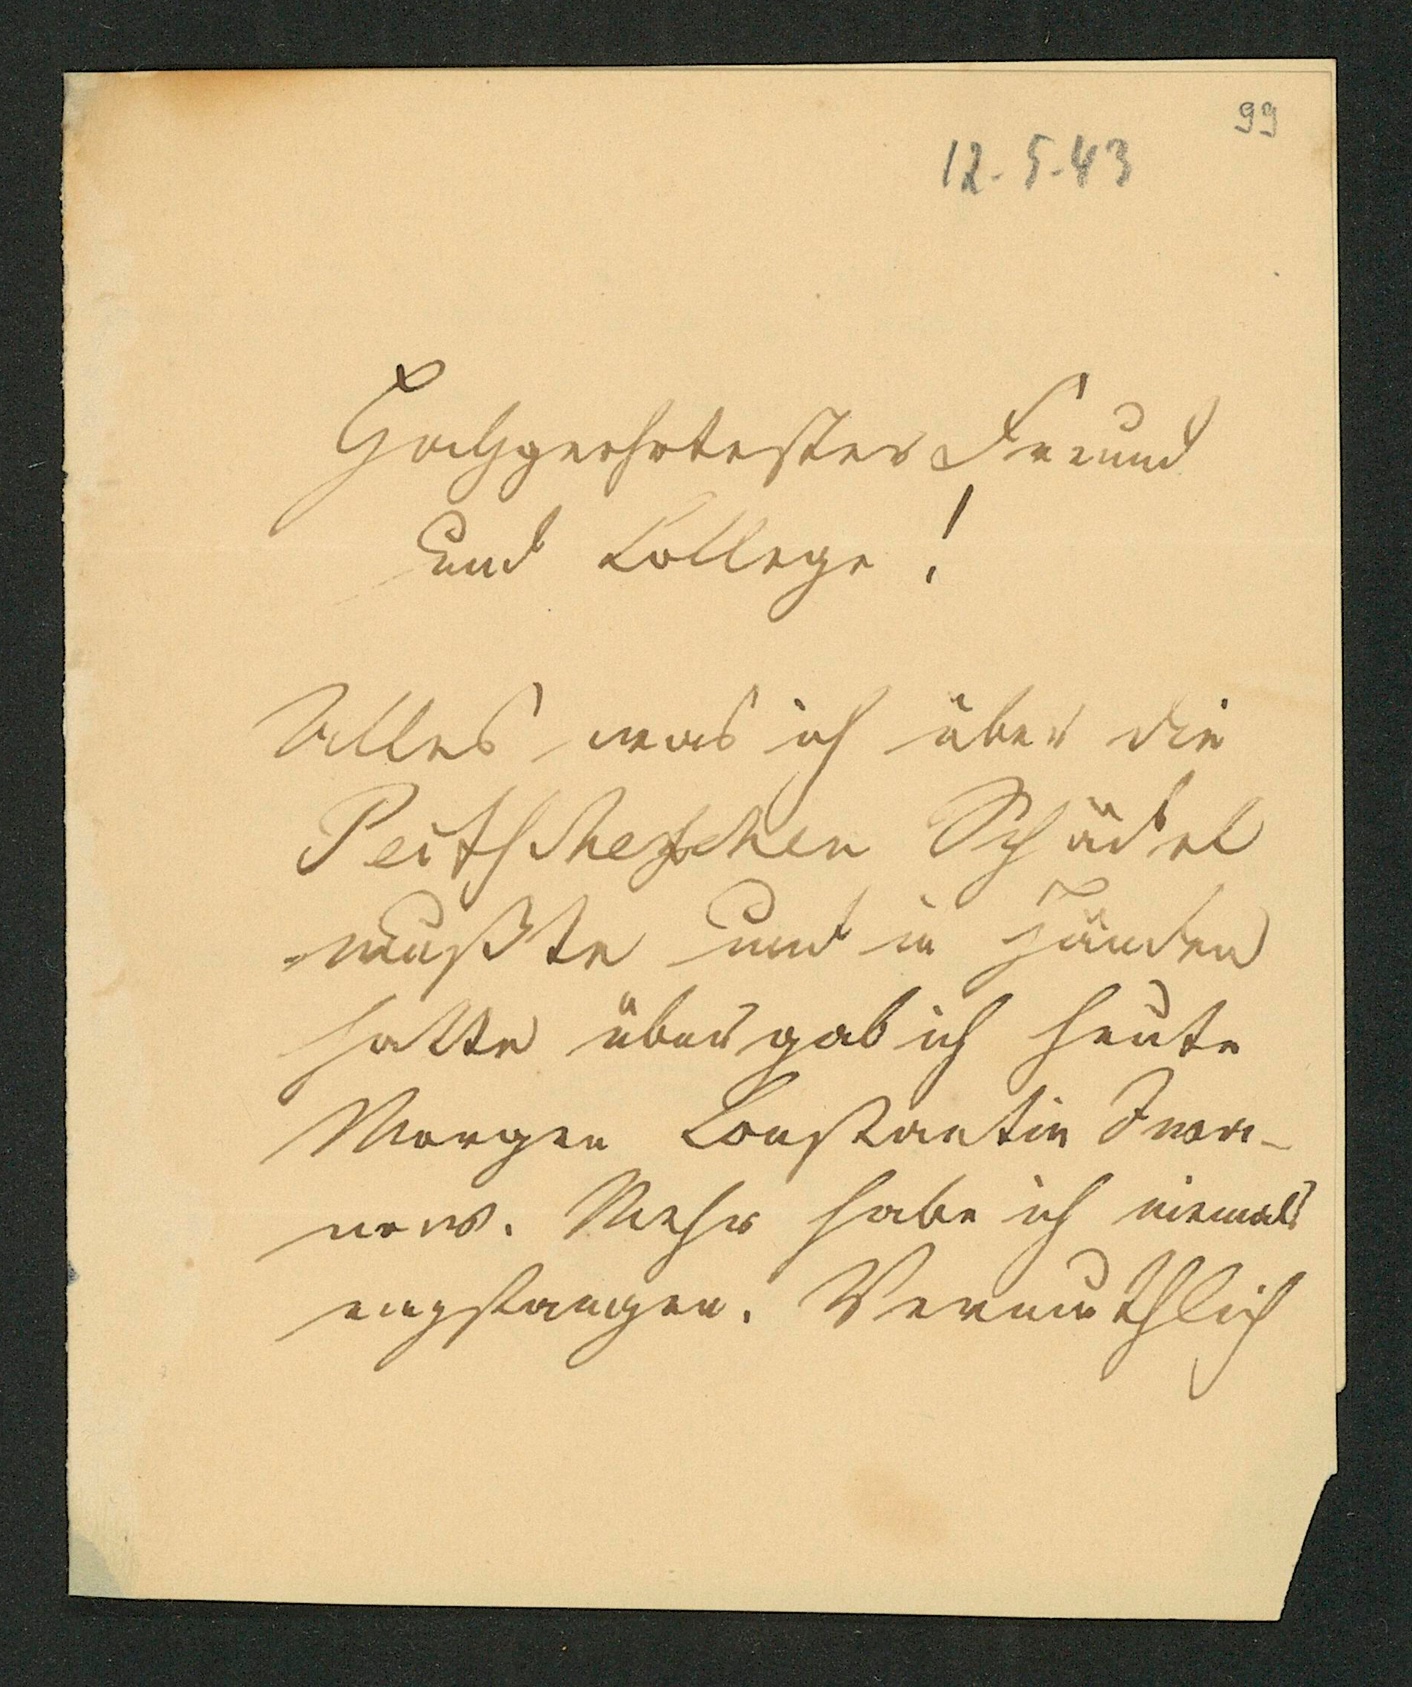 99
12-5-43
Hochgeehrtester Freund
und College!
Alles was ich über die
Schädel
wußte und in Händen
hatte übergab ich heute
Morgen Constantin Iwa-
now. Mehr habe ich niemals
empfangen. Vermuthlich